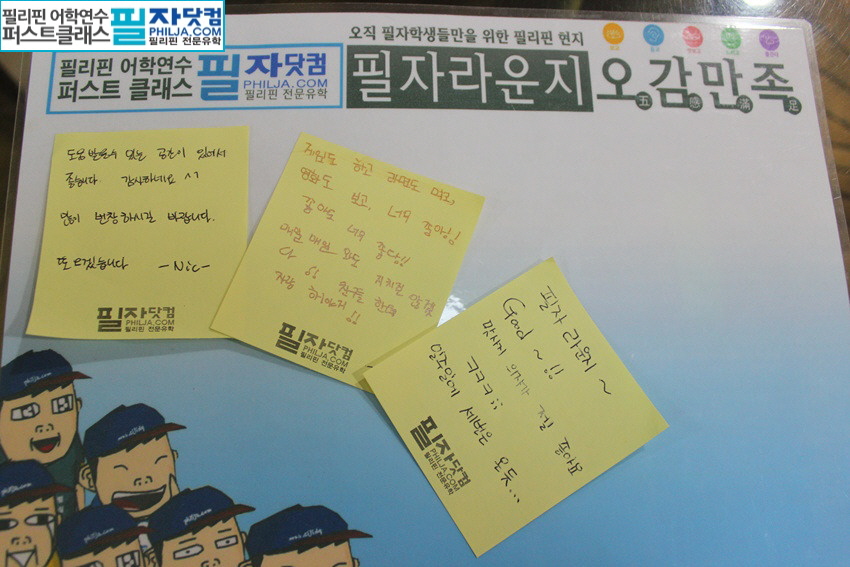 필리핀 어학연수
퍼스트클래스
필자닷컴
PHILJA.COM
필리핀 전문유학
오직 필자학생들만을 위한 필리핀 현지
필리핀 어학연수
퍼스트 클래스
필자닷컴
PHILJA.COM
필리핀 전문유학
필자라운지 오감만족
五 感 滿 足
도움 받을수 있는 공간이 있어서
좋습니다. 감사하네요 ^^
많이 번창하시길 바랍니다.
또 오겠습니다 -Nic-
필자닷컴
PHILJA.COM
필리핀 전문유학
게임도 하고 라면도 먹고,
영화도 보고, 너무 좋아!!
좋아도 너무 좋다!!
매일 매일 와도 지치질 않겠
다 !! 친구들 한테
자랑 해야지 !!
필자닷컴
PHILJA.COM
필리핀 전문유학
필자 라운지 ~
Good ~ !!
맛사지 의자가 제일 좋아요
ㅋㅋㅋ;;
일주일에 세번은 온듯...
필자닷컴
PHILJA.COM
필리핀 전문유학